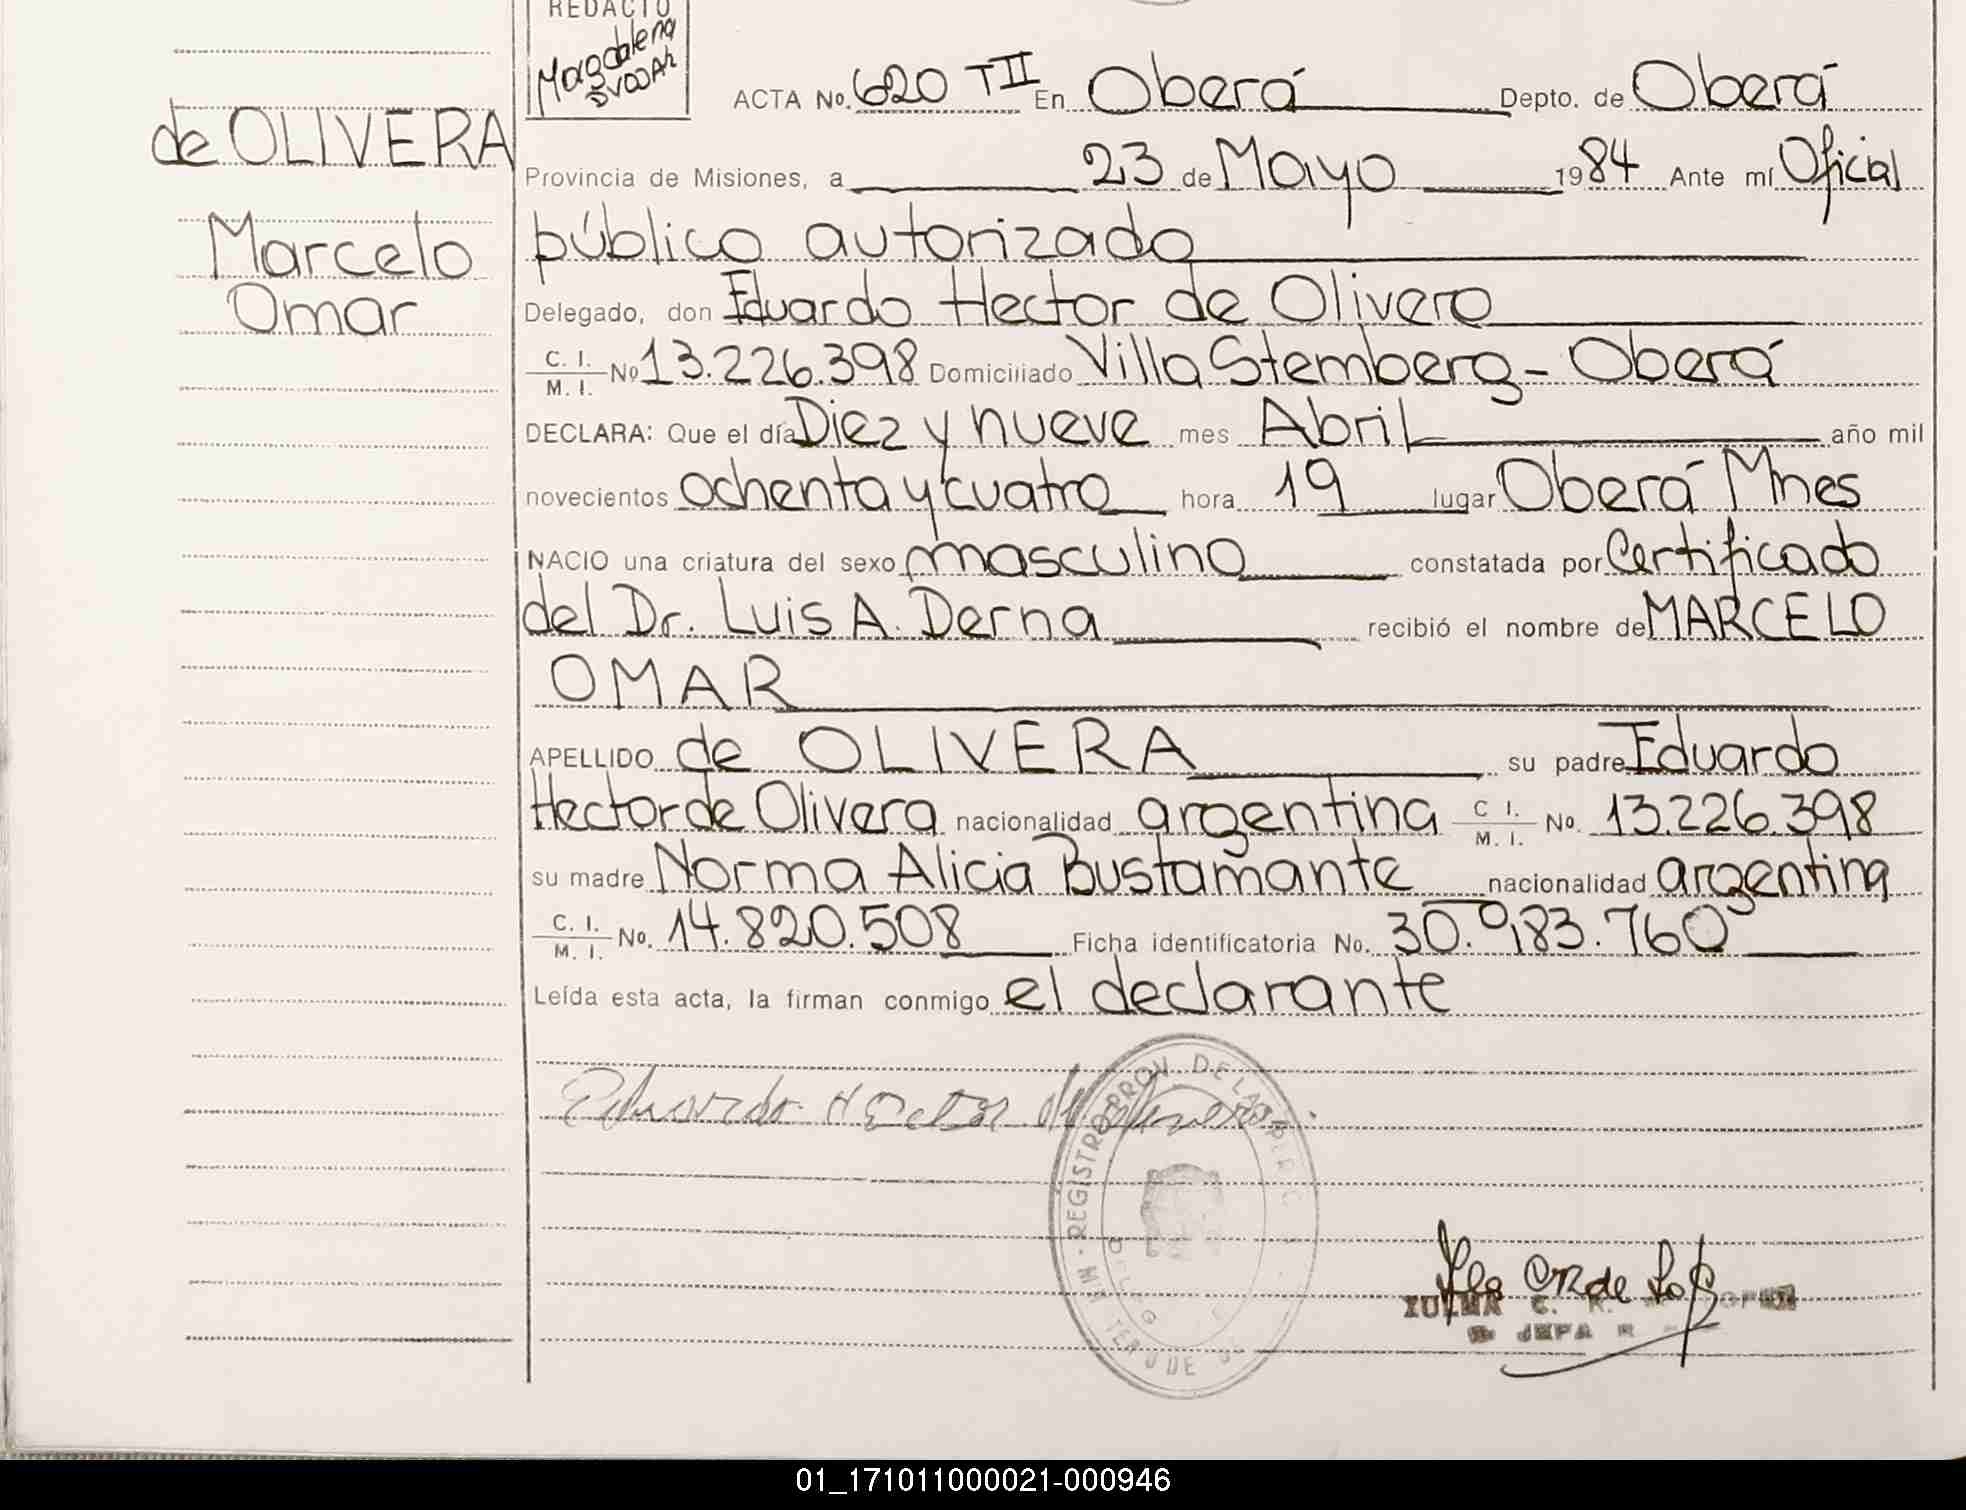 REDACTO
Magdalena
de OLIVERA
Marcelo
Omar
ACTA No. 620 TII En Oberá Depto. de Oberá
Provincia de Misiones, a 23 de Mayo 1984 Ante mí Oficial
público autorizado
Delegado, don Eduardo Hector de Olivera
C. I. / M. I. Nº 13.226.398 Domiciliado Villa Stemberg - Oberá
DECLARA: Que el día Diez y nueve mes Abril año mil
novecientos ochenta y cuatro hora 19 lugar Oberá Mnes
NACIO una criatura del sexo masculino constatada por Certificado
del Dr. Luis A. Derna recibió el nombre de MARCELO
OMAR
APELLIDO de OLIVERA su padre Eduardo
Hector de Olivera nacionalidad argentina C I. / M. I. No. 13.226.398
su madre Norma Alicia Bustamante nacionalidad argentina
C. I. / M. I. No. 14.820.508 Ficha identificatoria No. 30.983.760
Leída esta acta, la firman conmigo el declarante
Eduardo Hector de Olivera
REGISTRO PROV. DE LAS PER
ZULMA C. R.
JEFA
01_171011000021-000946